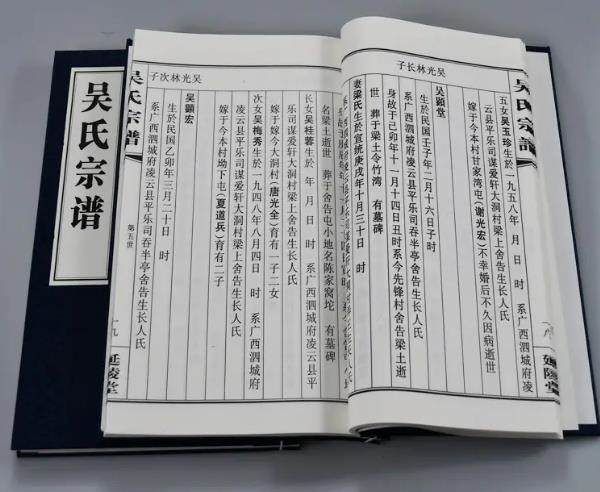 吴氏宗谱
延陵堂
吴光林长子
五女吴玉珍生於一九五八年 月 日 时 系广西泗城府凌
云县平乐司谋爱轩大洞村梁上舍告生长人氏
嫁于今本村甘家湾屯(谢光宏)不幸婚后不久因病逝世
吴顕堂
生於民国壬子年二月十六日子时
系广西泗城府凌云县平乐司吞半亭舍告生长人氏
身故于己卯年十一月十四日丑时系今先锋村舍告梁土逝
世 葬于梁土令竹湾 有墓碑
妻梁氏生於宣统庚戌年十月三十日 时
名梁土逝世 葬于舍告屯小地名陈家窝坨 有墓碑
长女吴桂蓉生於 年 月 日 时 系广西泗城府凌云县平
乐司谋爱轩大洞村梁上舍告生长人氏
嫁于嫁今大洞村(唐光全)育有一子二女
次女吴梅秀生於一九四八年八月四日 时 系广西泗城府
凌云县平乐司谋爱轩大洞村梁上舍告生长人氏
嫁于今本村坳下屯(夏道兵)育有二子
吴光林次子
吴顕宏
生於民国乙卯年三月二十日 时
系广西泗城府凌云县平乐司吞半亭舍告生长人氏
吴氏宗谱
第五世
十九
延陵堂
吴氏宗谱